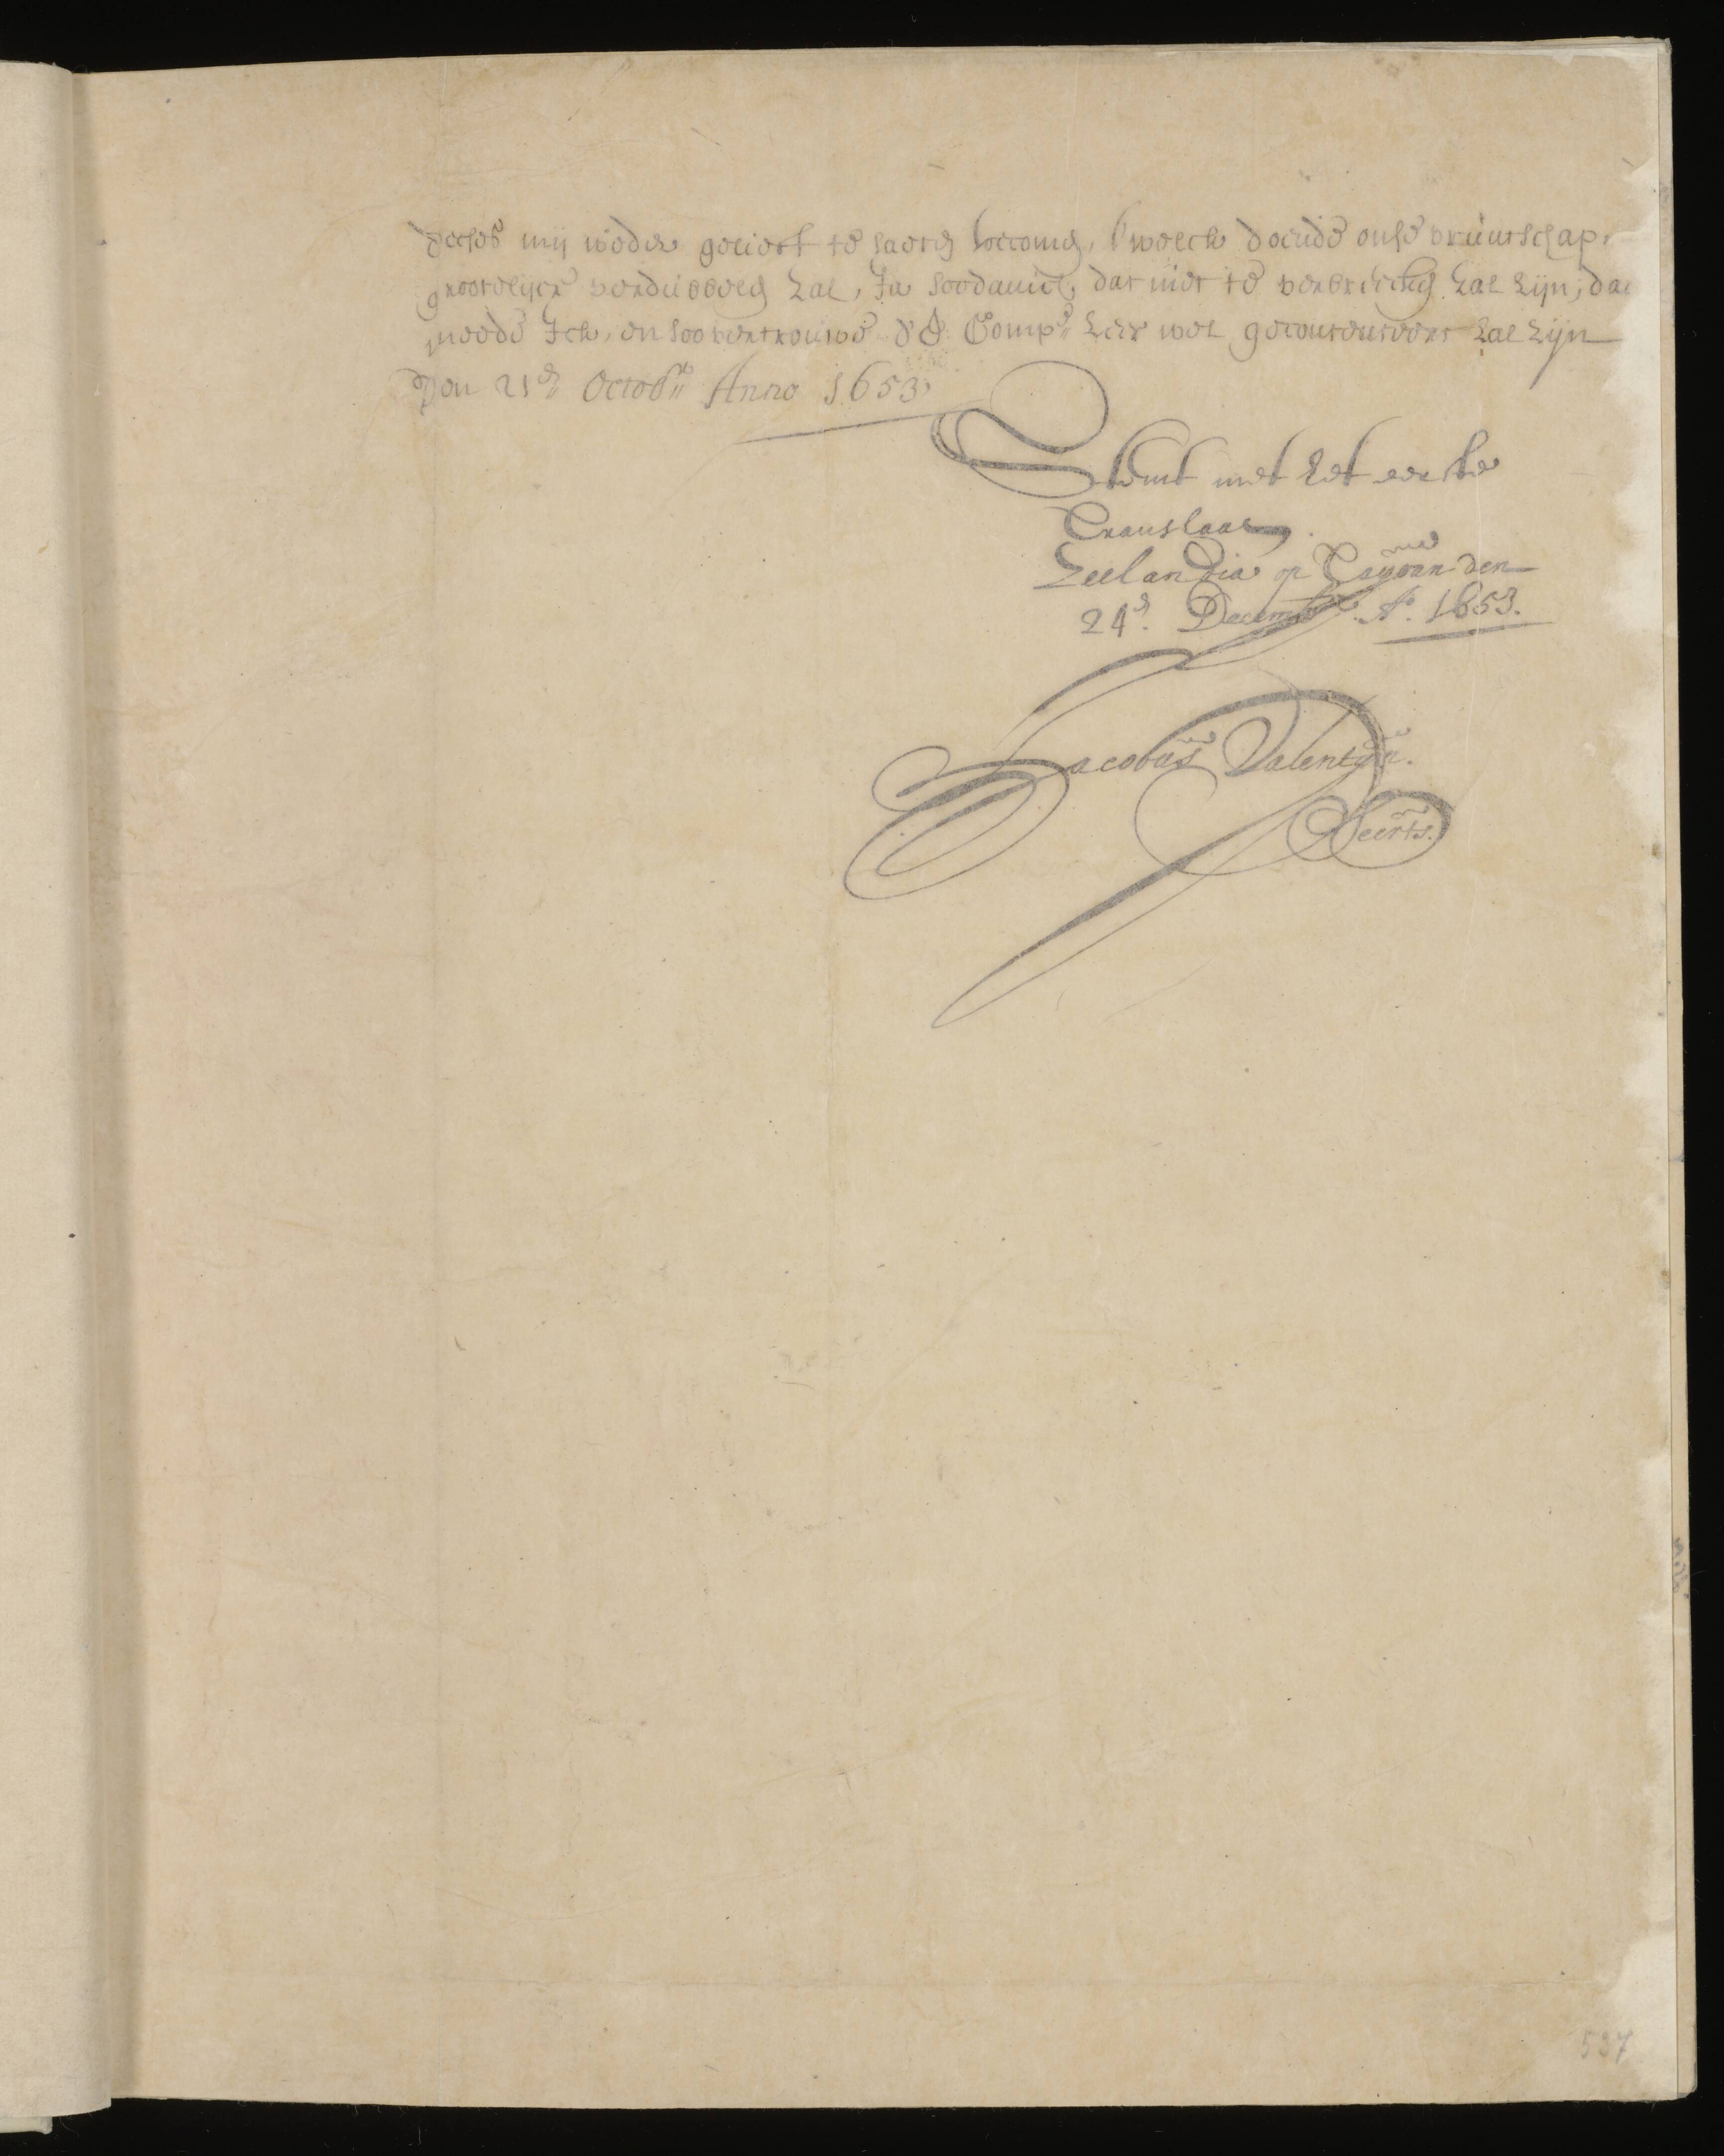 deses mij weder gelieft te laeten toecomen, 't welck doende onse vruntschap
grootelijcx verdubbelen zal, Ja soodanich dat niet te verbreecken zal zijn, daer
meede Ick, en soo vertrouwe d'E. Compe. zeer wel gecontenteert zal zijn
Den 21en. Octobr. Anno 1653.
Stemt met het eerste
Translaat.
Zeelandia op Tayouan den
24e. Decembr. Ao. 1653.
Jacobus Valentijn.
Secrts.
537